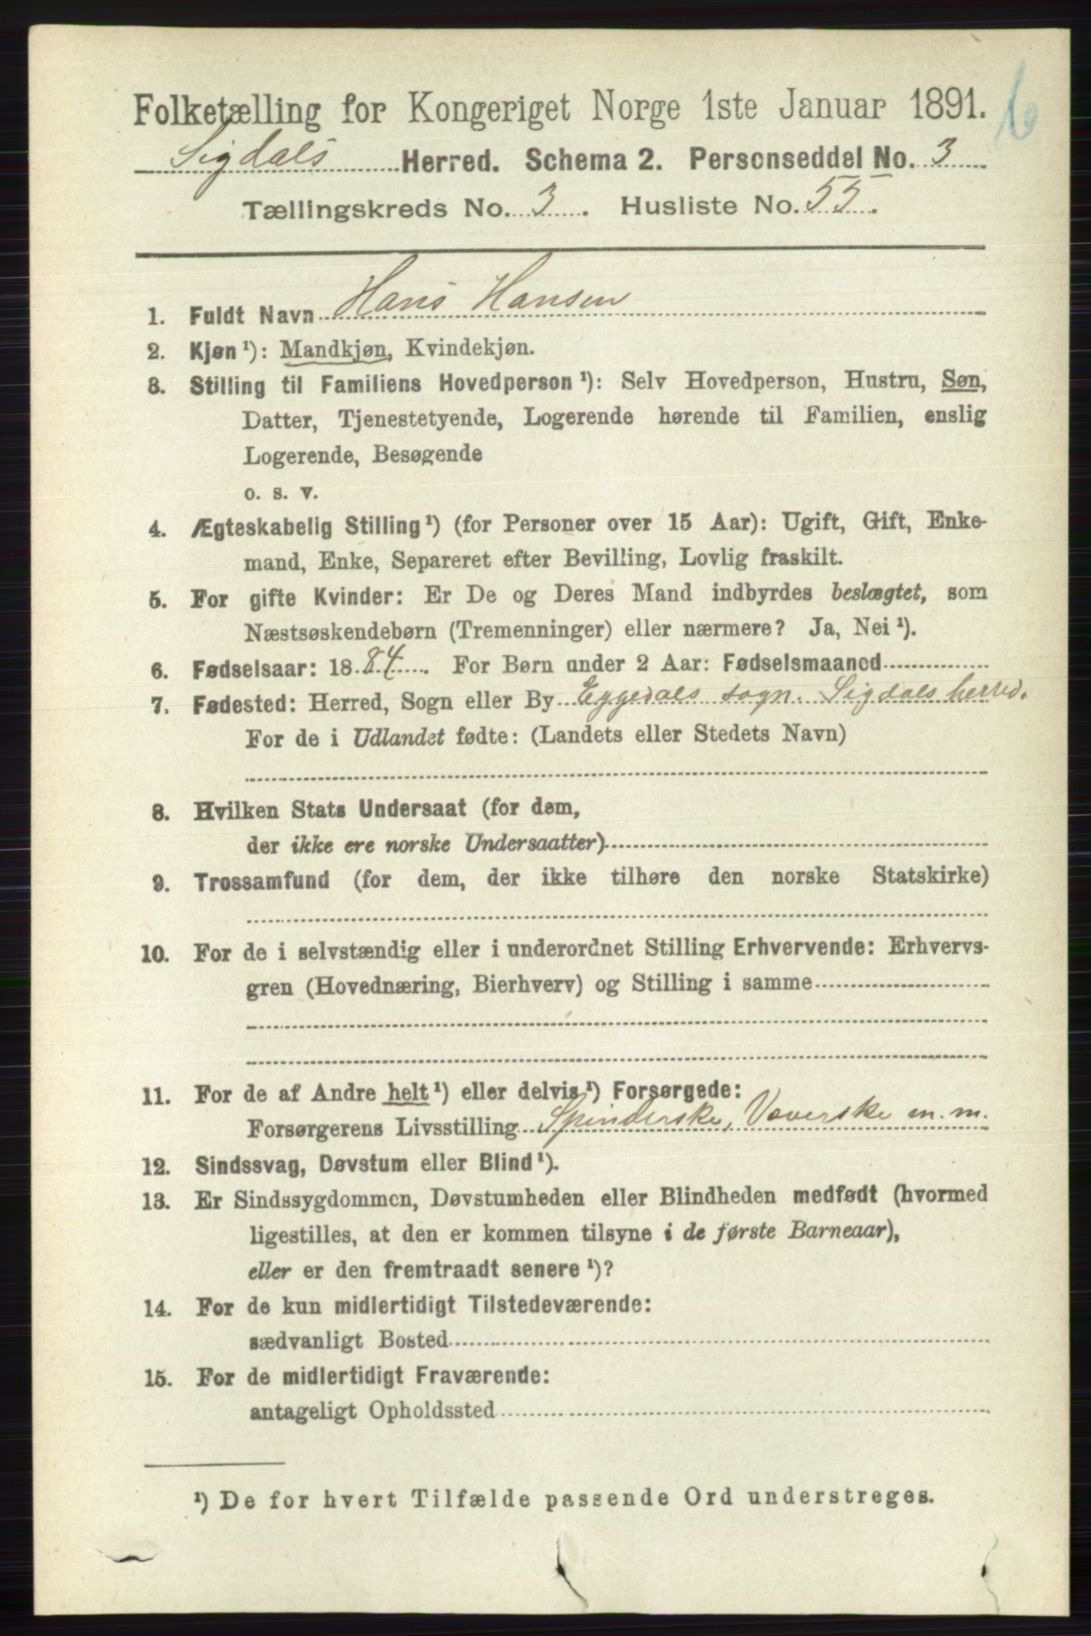 Folketælling for Kongeriget Norge 1ste Januar 1891.
6
Sigdals Herred. Schema 2. Personseddel No. 3
Tællingskreds No. 3. Husliste No. 55.
1. Fuldt Navn Hans Hansen
2. Kjøn ¹): Mandkjøn, Kvindekjøn.
3. Stilling til Familiens Hovedperson ¹): Selv Hovedperson, Hustru, Søn,
Datter, Tjenestetyende, Logerende hørende til Familien, enslig
Logerende, Besøgende
o. s. v.
4. Ægteskabelig Stilling ¹) (for Personer over 15 Aar): Ugift, Gift, Enke-
mand, Enke, Separeret efter Bevilling, Lovlig fraskilt.
5. For gifte Kvinder: Er De og Deres Mand indbyrdes beslægtet, som
Næstsøskendebørn (Tremenninger) eller nærmere? Ja, Nei ¹).
6. Fødselsaar: 1884. For Børn under 2 Aar: Fødselsmaaned
7. Fødested: Herred, Sogn eller By Eggedals sogn. Sigdals herred.
For de i Udlandet fødte: (Landets eller Stedets Navn)
8. Hvilken Stats Undersaat (for dem,
der ikke ere norske Undersaatter)
9. Trossamfund (for dem, der ikke tilhøre den norske Statskirke)
10. For de i selvstændig eller i underordnet Stilling Erhvervende: Erhvervs-
gren (Hovednæring, Bierhverv) og Stilling i samme
11. For de af Andre helt ¹) eller delvis ¹) Forsørgede:
Forsørgerens Livsstilling Spinderske, Væverske m. m.
12. Sindssvag, Døvstum eller Blind ¹).
13. Er Sindssygdommen, Døvstumheden eller Blindheden medfødt (hvormed
ligestilles, at den er kommen tilsyne i de første Barneaar),
eller er den fremtraadt senere ¹)?
14. For de kun midlertidigt Tilstedeværende:
sædvanligt Bosted
15. For de midlertidigt Fraværende:
antageligt Opholdssted
¹) De for hvert Tilfælde passende Ord understreges.